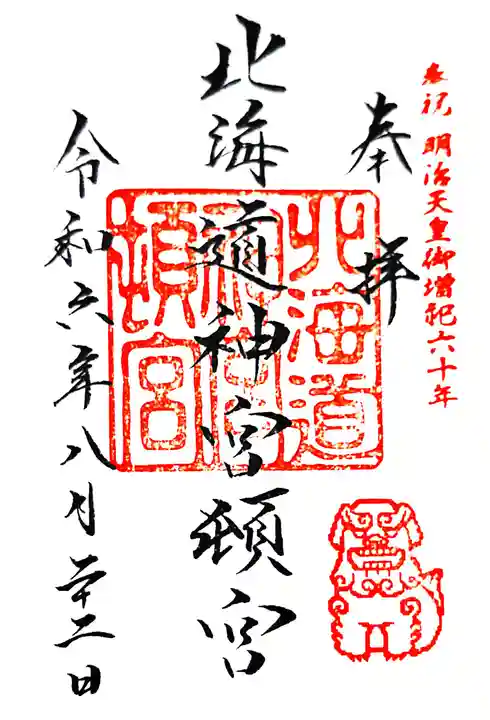 奉祝 明治天皇御増祀六十年
奉拝
北海道神宮頓宮
北海道
神宮
頓宮
令和六年八月二十二日